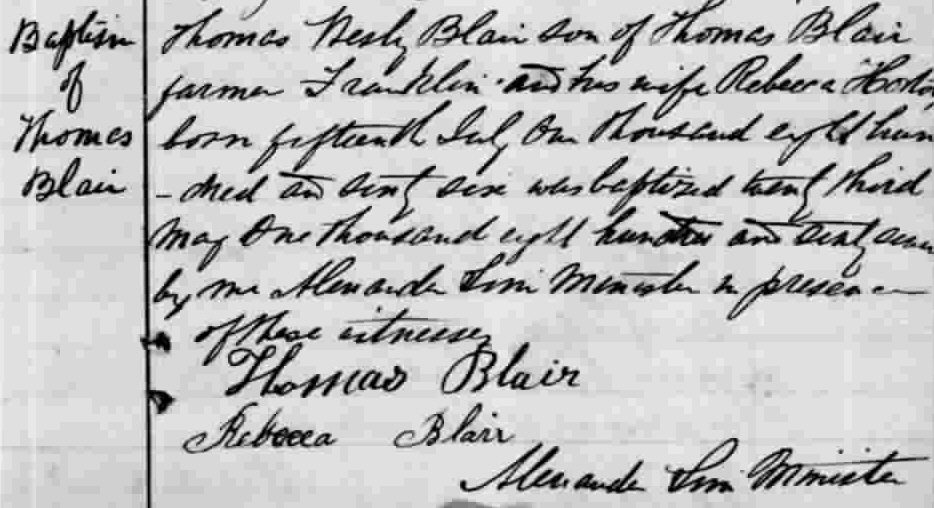 Baptism
of
Thomas
Blair
Thomas Wesly Blair son of Thomas Blair
farmer Franklin and his wife Rebecca
born fifteenth July One thousand eight hun
-dred and sixty six was baptized twenty third
May One thousand eight hundred and sixty seven
by me Alexander Sim Minister in presence
of these witnesses
Thomas Blair
Rebecca Blair
Alexander Sim Minister